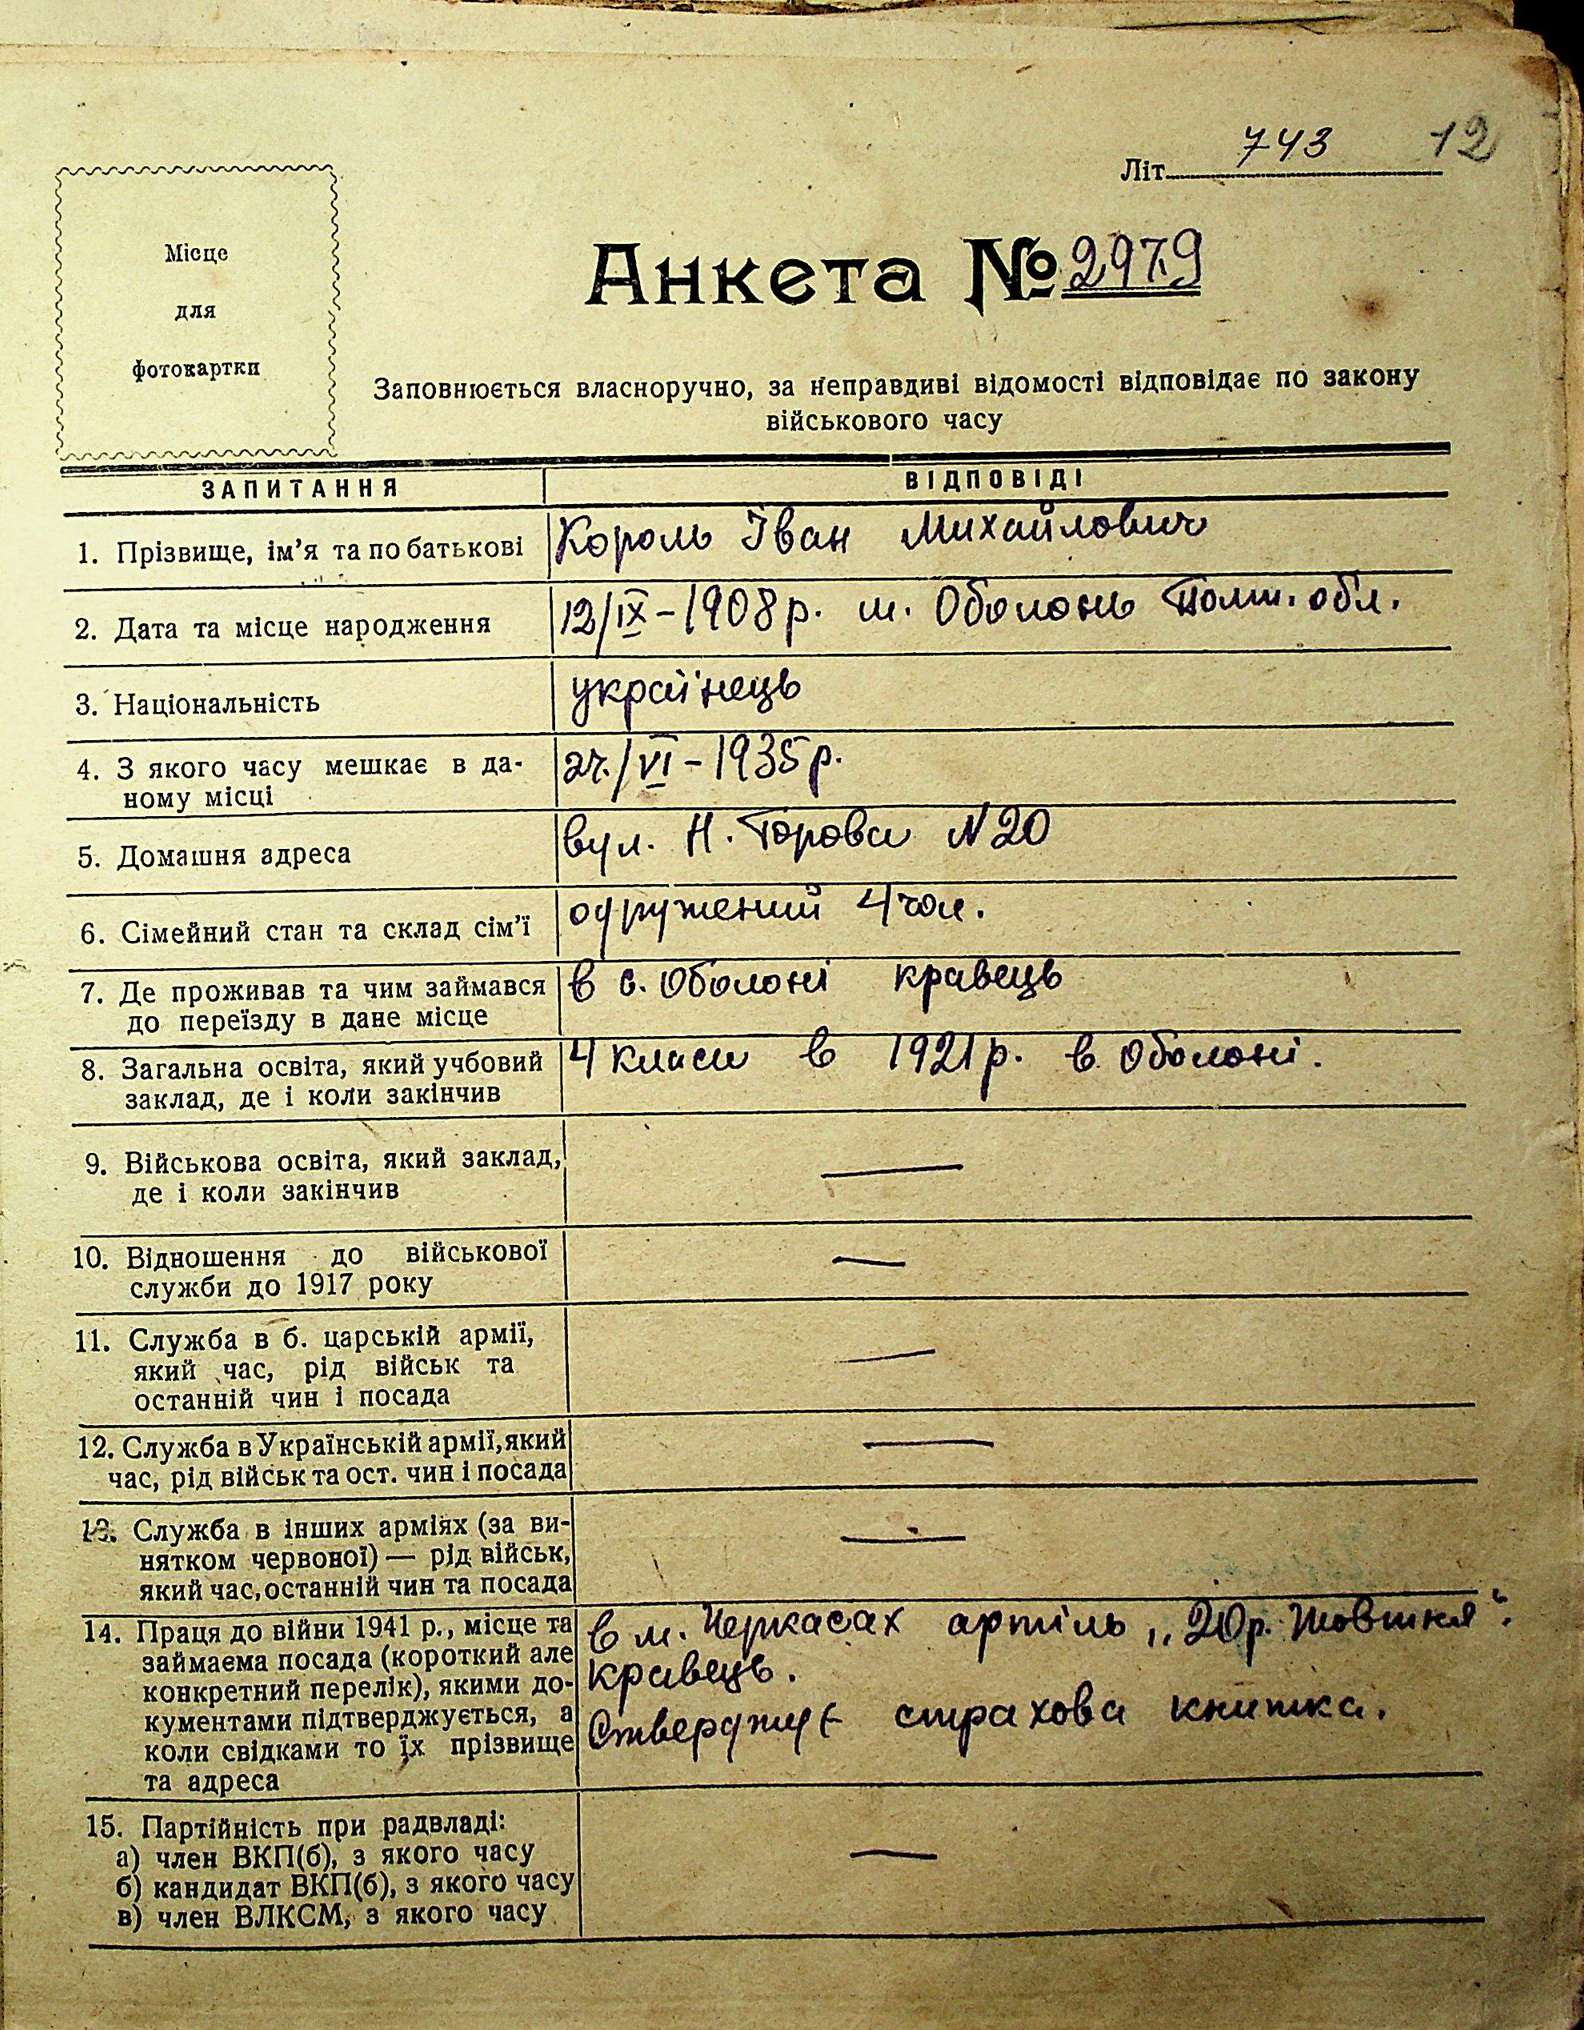 Літ. 743 12
Місце
для
фотокартки
Анкета № 2979
Заповнюється власноручно, за неправдиві відомості відповідає по закону
військового часу
ЗАПИТАННЯ ВІДПОВІДІ
1. Прізвище, ім'я та по батькові Король Іван Михайлович
2. Дата та місце народження 12/IX-1908 р. м. Оболонь Полт. обл.
3. Національність українець
4. З якого часу мешкає в да-
ному місці /VI-1935 р.
5. Домашня адреса вул. Н. №20
6. Сімейний стан та склад сім'ї одружений 4 чол.
7. Де проживав та чим займався в с. Оболоні кравець
до переїзду в дане місце
8. Загальна освіта, який учбовий 4 класи в 1921 р. в Оболоні.
заклад, де і коли закінчив
9. Військова освіта, який заклад, —
де і коли закінчив
10. Відношення до військової —
служби до 1917 року
11. Служба в б. царській армії,
який час, рід військ та —
останній чин і посада
12. Служба в Українській армії, який —
час, рід військ та ост. чин і посада
13. Служба в інших арміях (за ви- —
нятком червоної) — рід військ,
який час, останній чин та посада
14. Праця до війни 1941 р., місце та в м. Черкасах артіль „20 р. Жовтня".
займаема посада (короткий але кравець.
конкретний перелік), якими до-
кументами підтверджується, а Стверджує страхова книжка.
коли свідками то їх прізвище
та адреса
15. Партійність при радвладі:
а) член ВКП(б), з якого часу —
б) кандидат ВКП(б), з якого часу
в) член ВЛКСМ, з якого часу